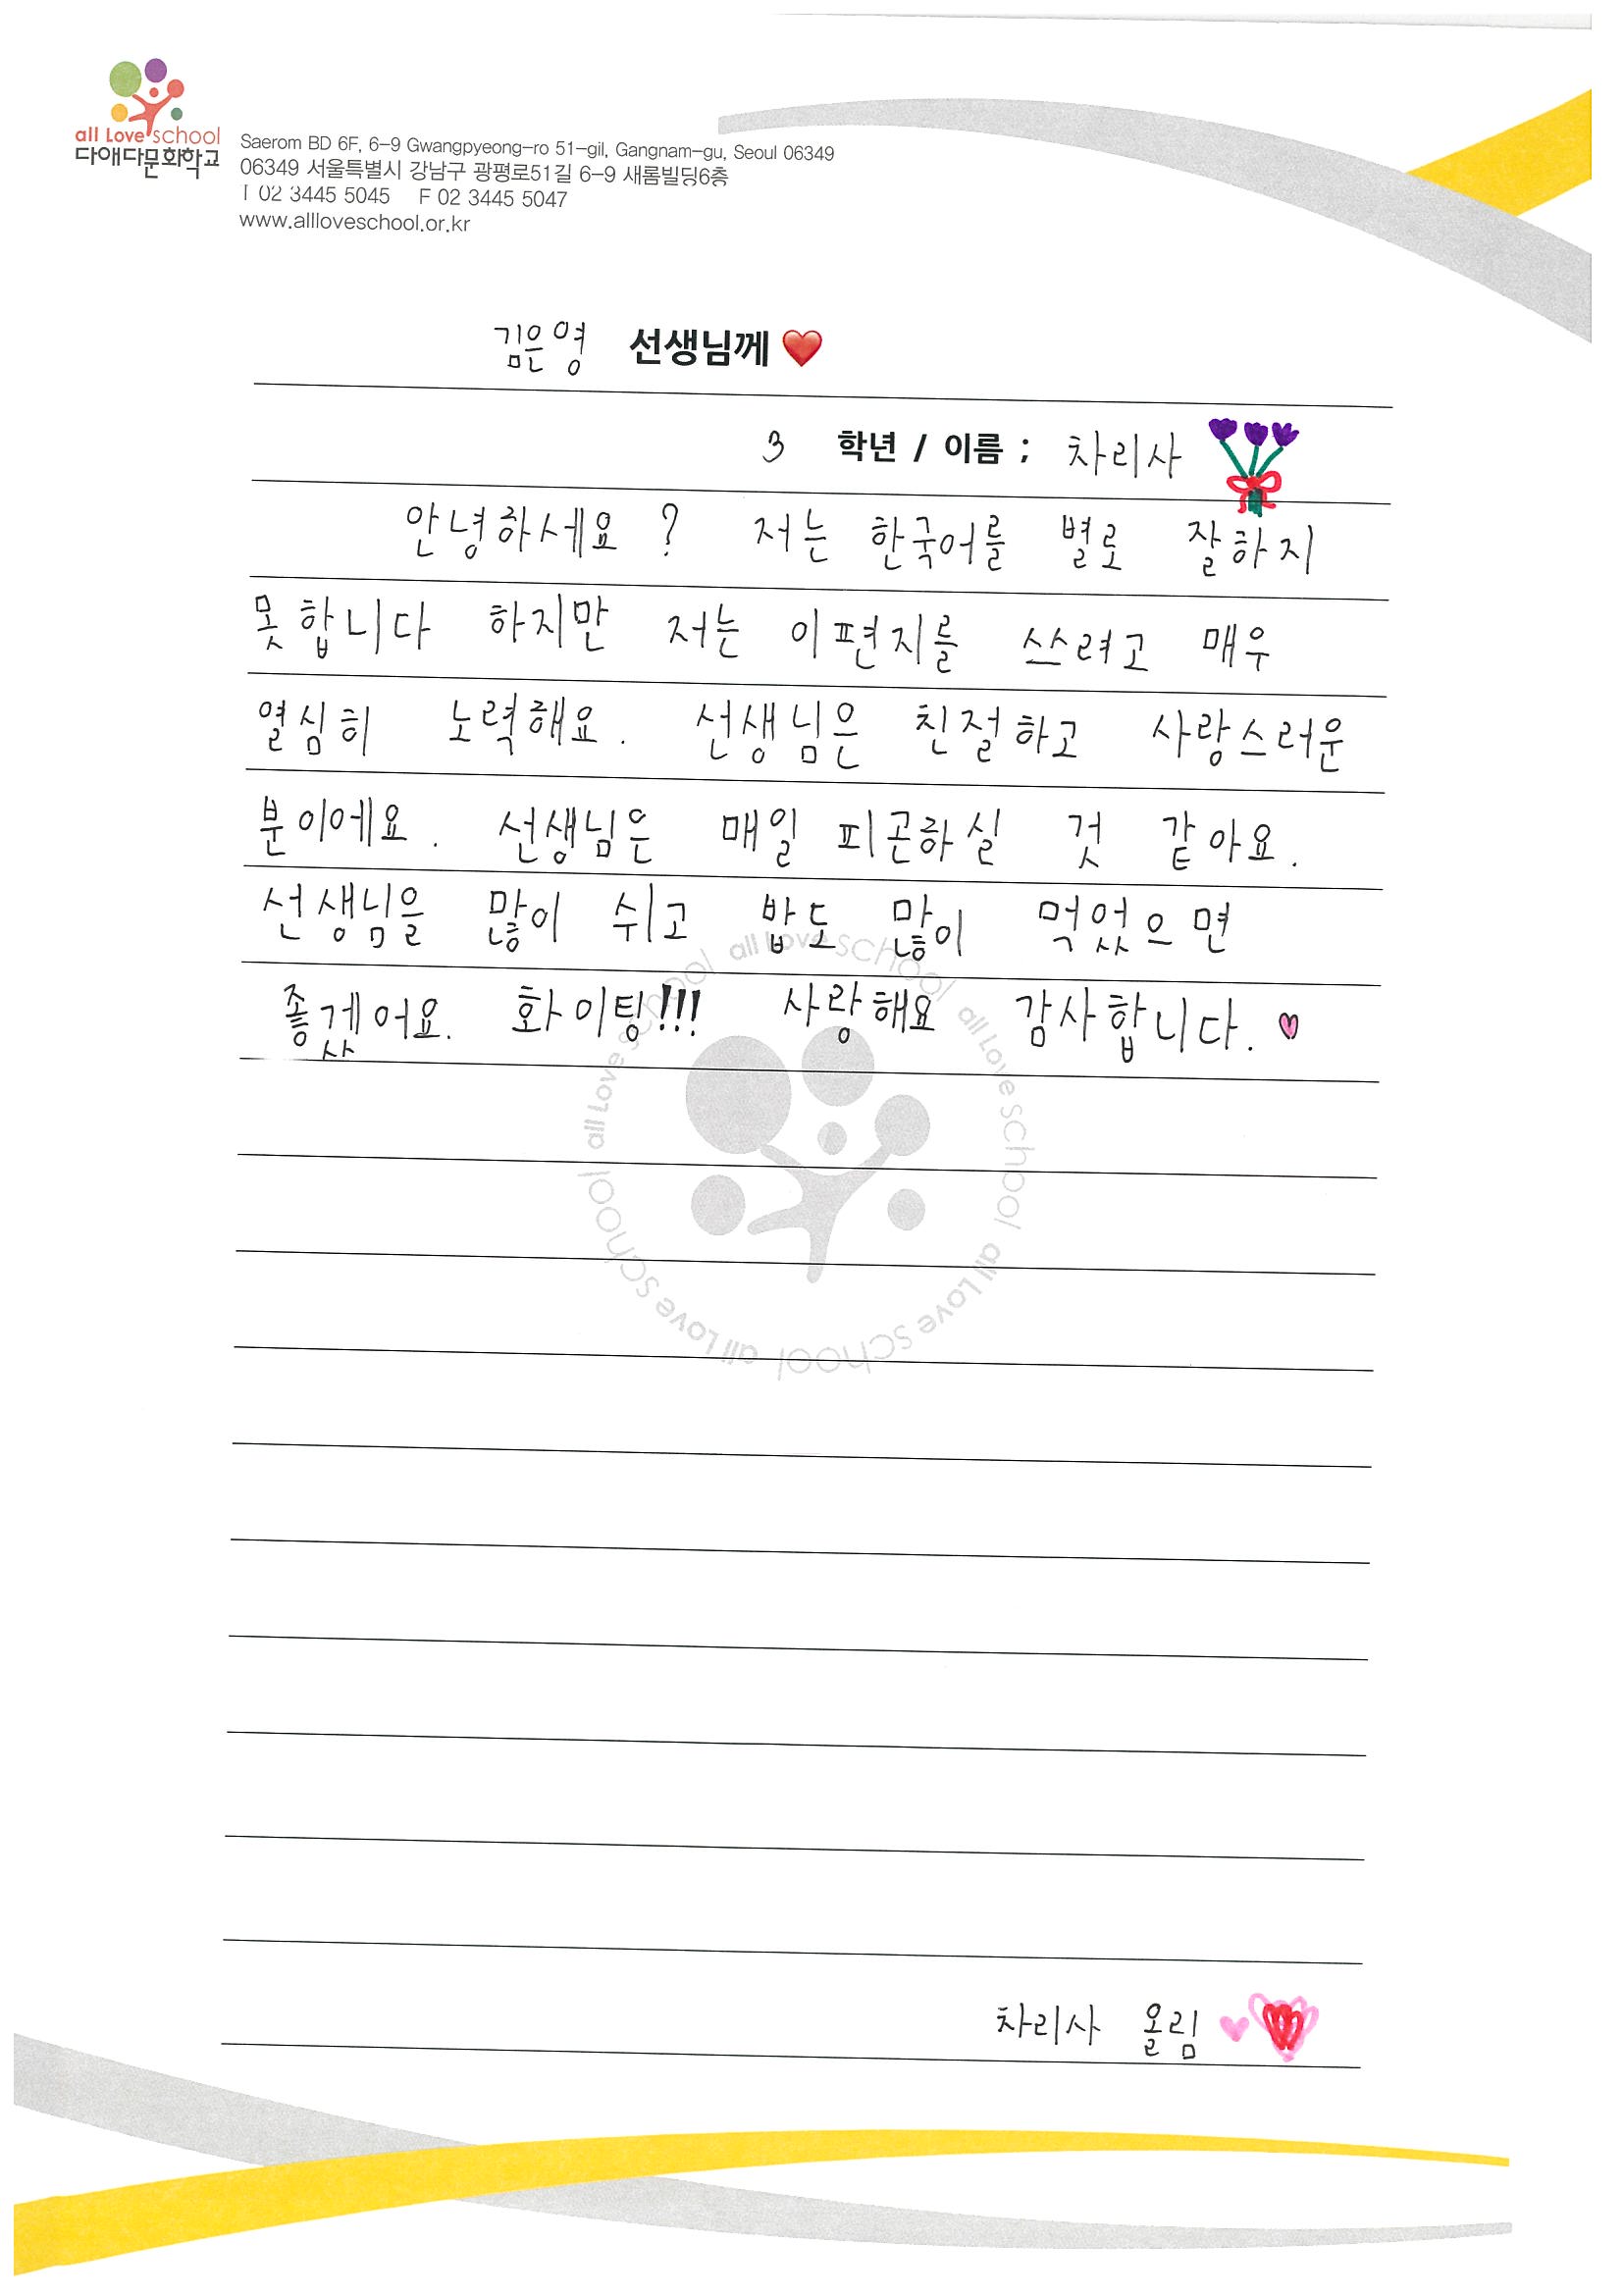 all Love school
다애다문화학교
Saerom BD 6F, 6-9 Gwangpyeong-ro 51-gil, Gangnam-gu, Seoul 06349
06349 서울특별시 강남구 광평로51길 6-9 새롬빌딩6층
T 02 3445 5045 F 02 3445 5047
www.allloveschool.or.kr
김은영 선생님께 ❤️
3 학년 / 이름 ; 차리사
안녕하세요? 저는 한국어를 별로 잘하지
못합니다 하지만 저는 이편지를 쓰려고 매우
열심히 노력해요. 선생님은 친절하고 사랑스러운
분이에요. 선생님은 매일 피곤하실 것 같아요.
선생님을 많이 쉬고 밥도 많이 먹었으면
좋겠어요. 화이팅!!! 사랑해요 감사합니다. ♡
all Love school all Love school all Love school all Love school all Love school
차리사 올림